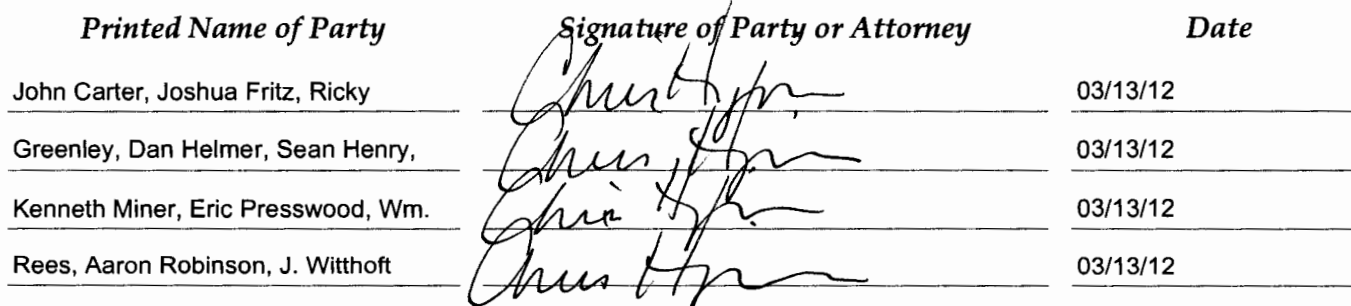 Printed Name of Party Signature of Party or Attorney Date
John Carter, Joshua Fritz, Ricky 03/13/12
Greenley, Dan Helmer, Sean Henry, 03/13/12
Kenneth Miner, Eric Presswood, Wm. 03/13/12
Rees, Aaron Robinson, J. Witthoft 03/13/12